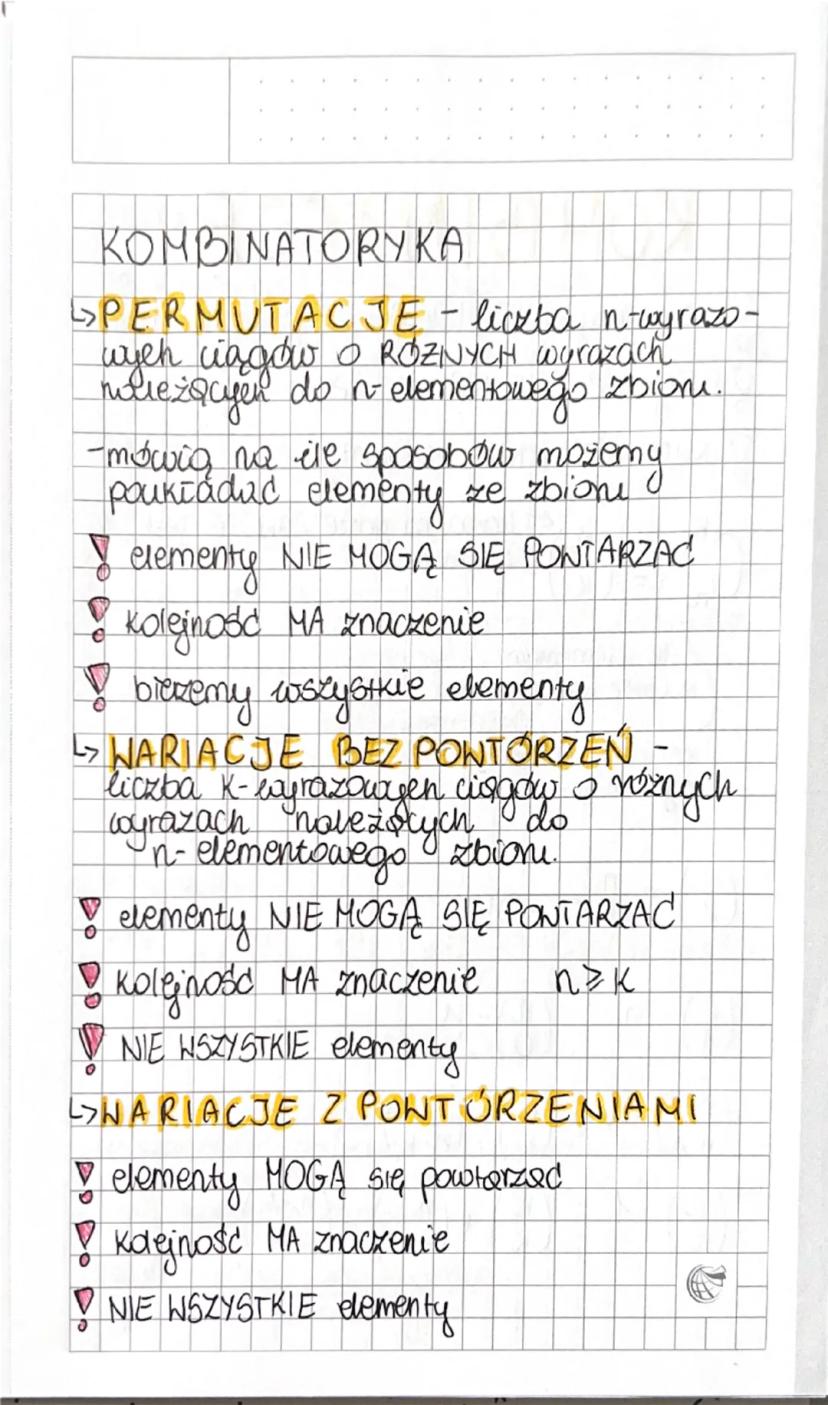 KOMBINATORYKA
↳ PERMUTACJE - liczba n-wyrazo-
wych ciągów o RÓŻNYCH wyrazach
należących do n-elementowego zbioru.
-mówią na ile sposobów możemy
poukładać elementy ze zbioru
! elementy NIE MOGĄ SIĘ POWTARZAĆ
! kolejność MA znaczenie
! bierzemy wszystkie elementy
↳ WARIACJE BEZ POWTÓRZEŃ -
liczba k-wyrazowych ciągów o różnych
wyrazach należących do
n-elementowego zbioru.
! elementy NIE MOGĄ SIĘ POWTARZAĆ
! kolejność MA znaczenie n ≥ k
! NIE WSZYSTKIE elementy
↳ WARIACJE Z POWTÓRZENIAMI
! elementy MOGĄ się powtarzać
! kolejność MA znaczenie
! NIE WSZYSTKIE elementy